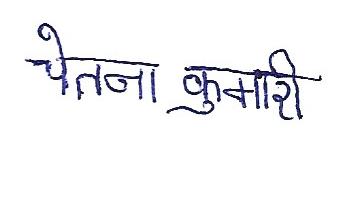 चेतना कुमारी